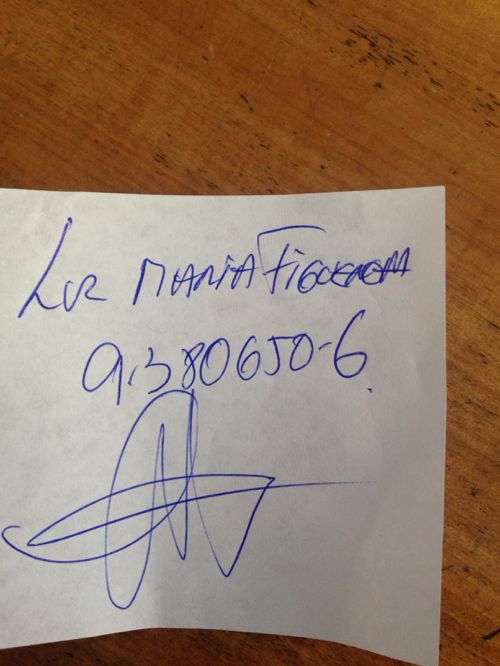 Luz MARIA FIGUEROA
9.380650-6